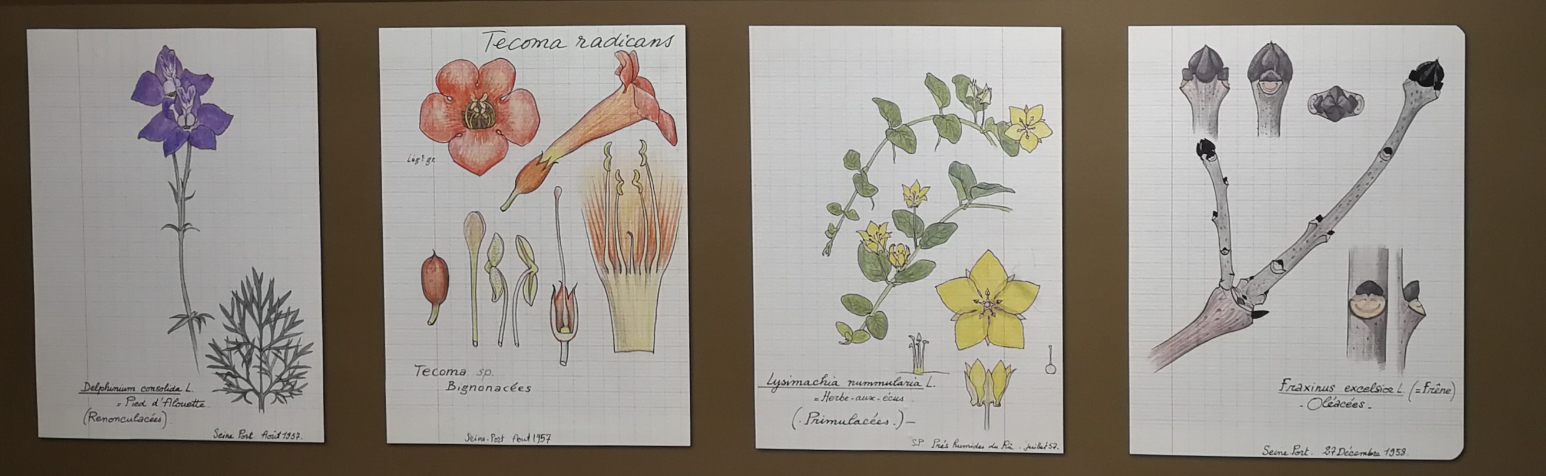 Delphinium consolida L.
= Pied d'Alouette
(Renonculacées)
Seine Port Août 1957.
Tecoma radicans
Tecoma sp.
Bignonacées
Seine-Port Aout 1957
Lysimachia nummularia L.
= Herbe-aux-écus
(Primulacées.)-
SP Prés humides du Rû. juillet 57.
Fraxinus excelsior L. (= Frêne)
- Oléacées -
Seine Port. 27 Décembre 1958.